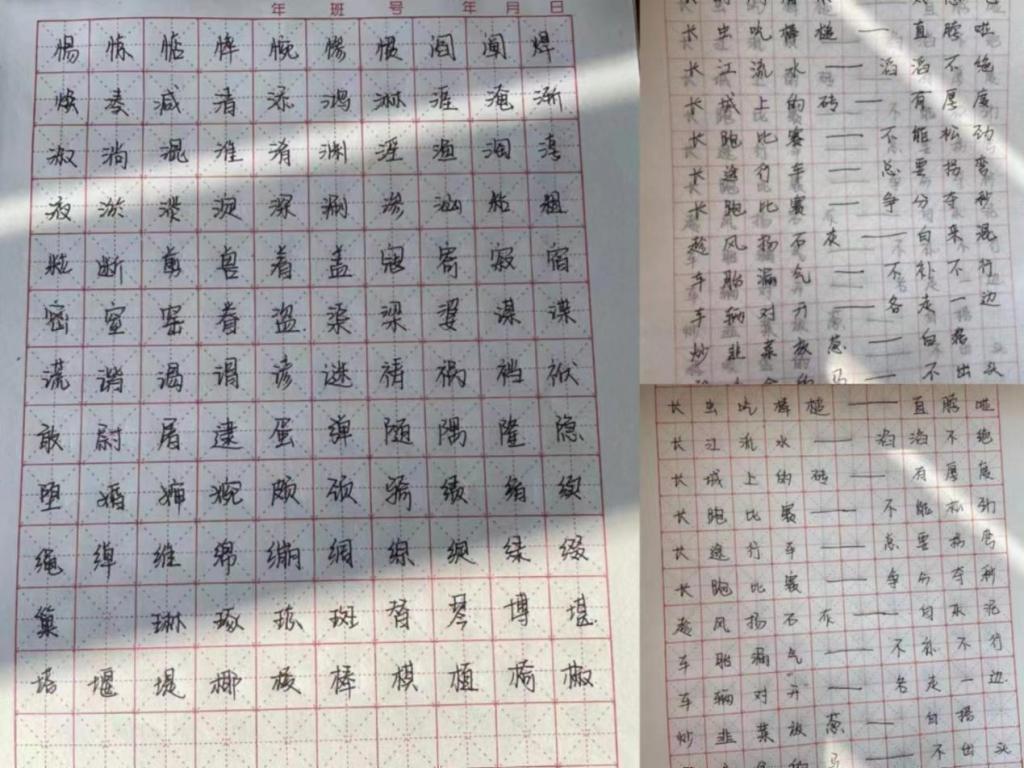 年 班 号 年 月 日
惕 惊 惦 悴 惋 惨 惯 阎 阐 焊
焕 凌 减 清 添 鸿 淋 涯 淹 渐
淑 淌 混 淮 淆 渊 淫 渔 淳
液 淤 淡 淀 深 涮 渗 汕 粘 粗
粒 断 剪 兽 着 盖 寇 寄 寂 宿
密 窒 窑 眷 盗 渠 梁 婆 谋 谍
谎 谐 谒 谓 谚 谜 祷 祸 裆 袱
敢 尉 屠 逮 蛋 弹 随 隅 隆 隐
堕 婚 婶 婉 颇 颈 骑 绩 绪 续
绳 绰 维 绵 绷 绸 综 绽 绿 缀
巢 琳 琢 琼 斑 替 琴 博 堪
塔 堰 堤 椰 棱 棒 棋 植 椅 椒
长 虫 吃 棒 槌 —— 直 脖 啦
长 江 流 水 —— 滔 滔 不 绝
长 城 上 的 砖 —— 有 厚 度
长 跑 比 赛 —— 不 能 松 劲
长 途 行 车 —— 总 要 拐 弯
长 跑 比 赛 —— 争 分 夺 秒
趁 风 扬 石 灰 —— 白 来 混
车 胎 漏 气 —— 不 补 不 行
车 辆 对 开 —— 各 走 一 边
炒 韭 菜 放 葱 —— 白 搭
不 出 头
长 虫 吃 棒 槌 —— 直 脖 啦
长 江 流 水 —— 滔 滔 不 绝
长 城 上 的 砖 —— 有 厚 度
长 跑 比 赛 —— 不 能 松 劲
长 途 行 车 —— 总 要 拐 弯
长 跑 比 赛 —— 争 分 夺 秒
趁 风 扬 石 灰 —— 白 来 混
车 胎 漏 气 —— 不 补 不 行
车 辆 对 开 —— 各 走 一 边
炒 韭 菜 放 葱 —— 白 搭
不 出 头